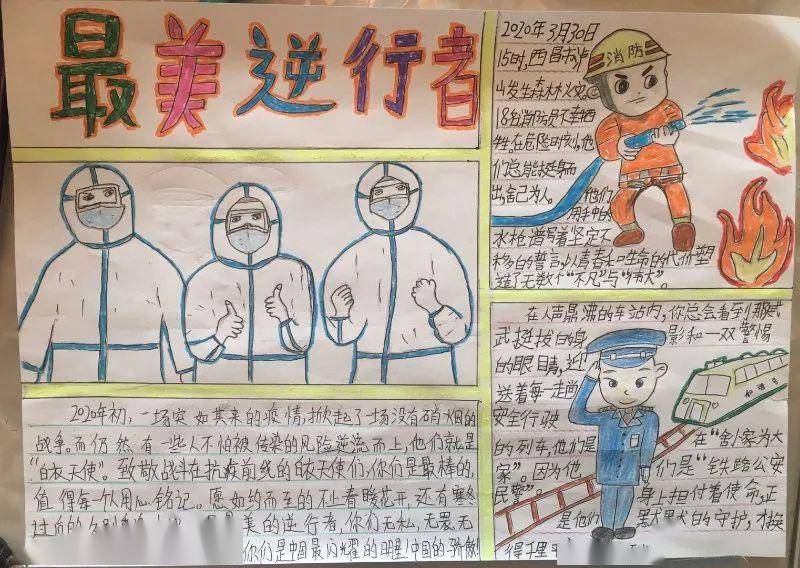 最美逆行者
2020年初,一场突如其来的疫情,掀起了一场没有硝烟的
战争。而仍然有一些人不怕被传染的风险逆流而上,他们就是
“白衣天使”。致敬战斗在抗疫前线的白衣天使们,你们是最棒的,
值得每个人用心铭记。愿如约而至的不止春暖花开,还有寒冬
过后的
美的逆行者,你们无私,无畏,无
你们是中国最闪耀的明星!中国的骄傲!
2020年3月30日
15时,西昌市泸
山发生森林火灾
18名消防员不幸牺
牲。在危险时刻,他
们总能挺身而
出,舍己为人。他们
用手中的
水枪谱写着坚定不
移的誓言,以青春和生命的代价塑
造了无数个“不凡”与“伟大”。
消防
在人声鼎沸的车站内,你总会看到那威
武挺拔的身影和一双警惕
的眼睛,迎
送着每一趟
安全行驶
的列车,他们是在“舍小家为大
家”。因为他们是“铁路公安
民警”。身上担付着使命,正
是他们
的守护,才换
得千里
和谐号